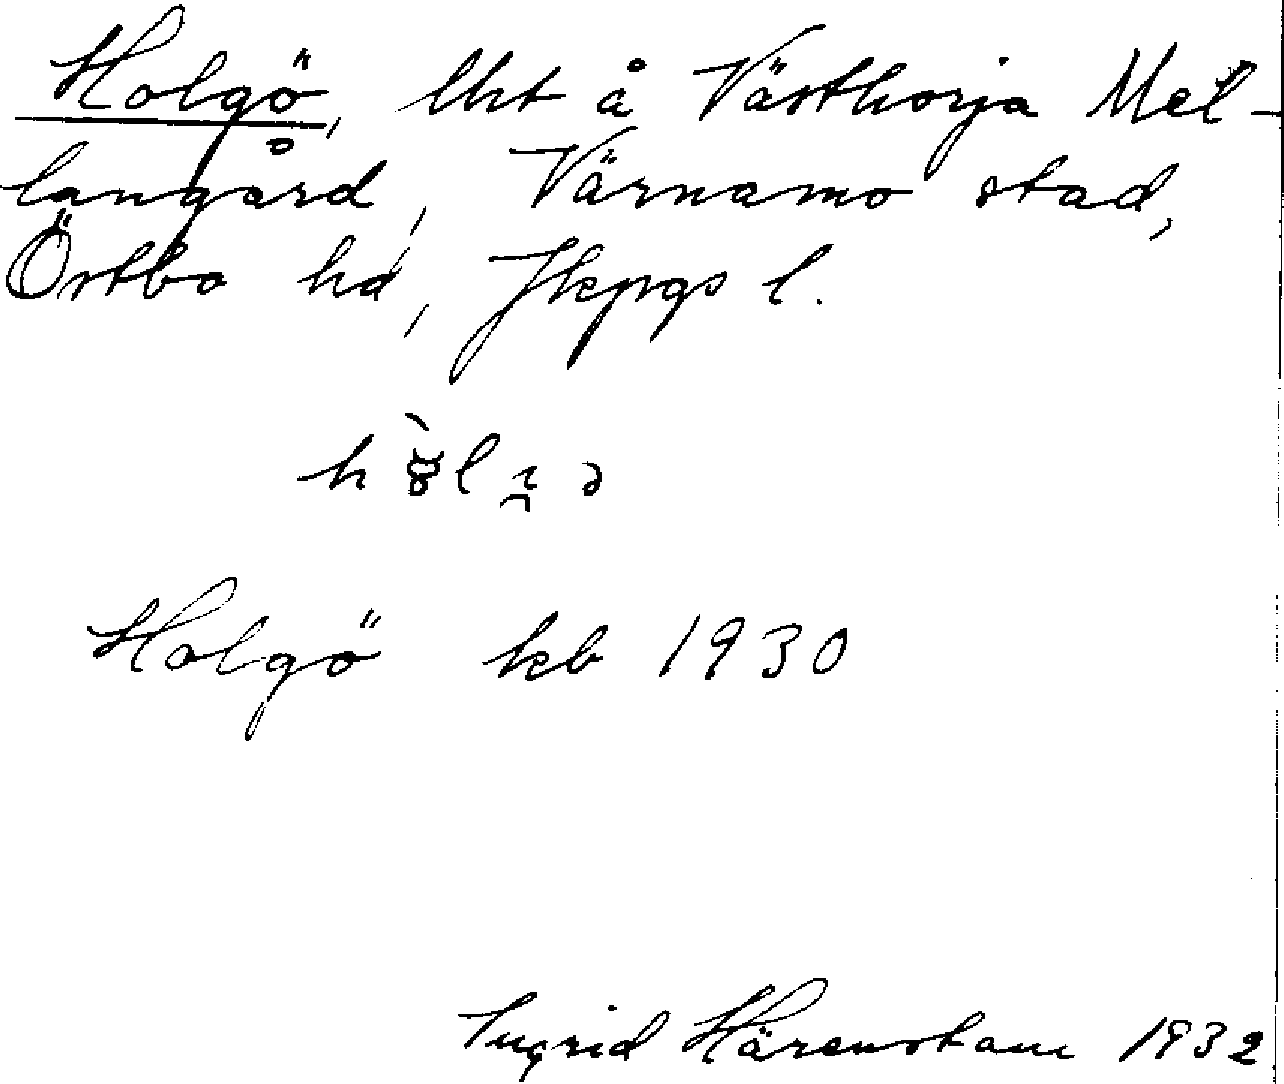 Holgö, lht å Västhorja Mel-
langård, Värnamo stad,
Östbo hd, Jkpgs l.
Holgö kb 1930
Ingrid Härenstam 1932